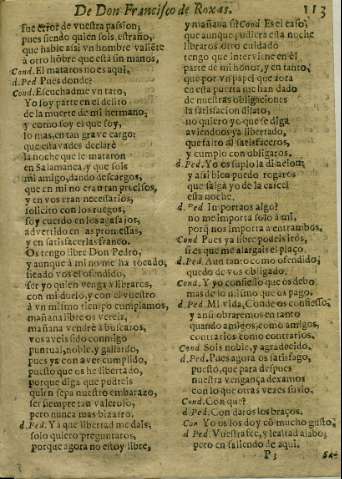 De Don Francisco de Roxas. 113
fue error de vuestra passion,
pues siendo quien sois, es traño,
que habie assi vn hombre valiete
à otro hõbre que està sin manos,
Cond. El mataros no es aqui.
d. Ped Pues donde?
Cond. Escuchadme vn rato,
Yo soy parte en el delito
de la muerte de mi hermano,
y como soy el que soy,
lo mas, en tan grave cargo;
que essa vades declarè
la noche que le mataron
en Salamanca, y que sois
mi amigo, dando descargos,
que en mi no eran tan precisos,
y en vos eran necessarios,
solicito con los ruegos,
soy cuerdo en los agasajos,
advertido en las promessas,
y en satisfacerlas franco.
Os tengo libre Don Pedro,
y aunque à mi no me ha tocado,
siendo vos el ofendido,
ser yo quien venga à libraros,
con mi duelo, y con el vuestro
à vn mismo tiempo cumplamos,
mañana libre os vereis,
mañana vendrè à buscaros,
vos aveis sido conmigo
puntual, noble, y gallardo,
pues ya con aver cumplido,
puesto que os he libertado,
porque diga que podreis
quien sepa nuestro embarazo,
ser siempre tan valeroso,
pero nunca mas bizarro.
d. Ped. Ya que libertad me dais,
solo quiero preguntaros,
porque agora no estoy libre,
y mañana si? Cond Es el caso,
que aunque pudiera esta noche
libraros, otro cuidado
tengo que interviene en èl
parte de mi honor, y en tanto,
que por vn papel que aora
en esta puerta me han dado
de nuestras obligaciones
la satisfacion dilato,
no quiero yo, que se diga
aviendoos ya libertado,
que falto al satisfaceros,
y cumplo con obligaros.
d. Ped. Yo os suplo la dilacion,
y assi bien podeis rogaros
que salga yo de la carcel
esta noche.
d. Ped. Importaos algo?
no me importa solo à mi,
porq̃ nos importa a entrambos.
Cond Pues ya libre podeis iros,
si es que me alargais el plaço.
d. Ped. Aun tanto como ofendido,
quedo de vos obligado.
Cond. Y yo confiesso que os debo
mas de lo mismo que os pago.
d. Ped. Mi vida, Conde os confiesso,
y assi obraremos en tanto
quando amigos, como amigos,
contrarios como contrarios.
Cond Sois noble, y agradecido.
d. Ped. Pues agora os satisfago,
puesto, que para despues
nuestra vengança dexamos
con lo que otras vezes suelo.
Cond. Con que?
d. Ped. Con daros los braços.
Con Yo os los doy cõ mucho gusto,
d. Ped. Vuestra fee, y lealtad alabo;
pero en saliendo de aqui.
P3 SA-